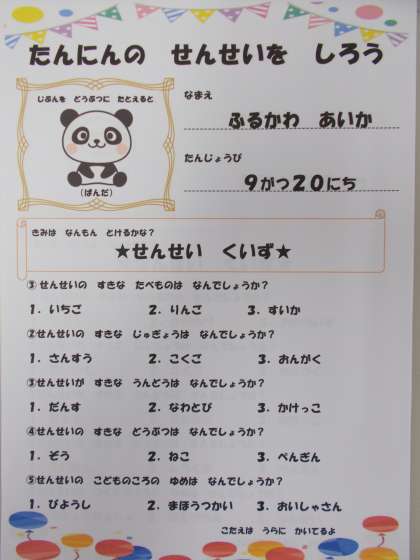 たんにんの　せんせいを　しろう
じぶんを　どうぶつに　たとえると
（ぱんだ）
なまえ
ふるかわ　あいか
たんじょうび
９がつ２０にち
きみは　なんもん　とけるかな？
★せんせい　くいず★
①せんせいの　すきな　たべものは　なんでしょうか？
１．いちご　２．りんご　３．すいか
②せんせいの　すきな　じゅぎょうは　なんでしょうか？
１．さんすう　２．こくご　３．おんがく
③せんせいが　すきな　うんどうは　なんでしょうか？
１．だんす　２．なわとび　３．かけっこ
④せんせいの　すきな　どうぶつは　なんでしょうか？
１．ぞう　２．ねこ　３．ぺんぎん
⑤せんせいの　こどものころの　ゆめは　なんでしょうか？
１．びようし　２．まほうつかい　３．おいしゃさん
こたえは　うらに　かいてるよ